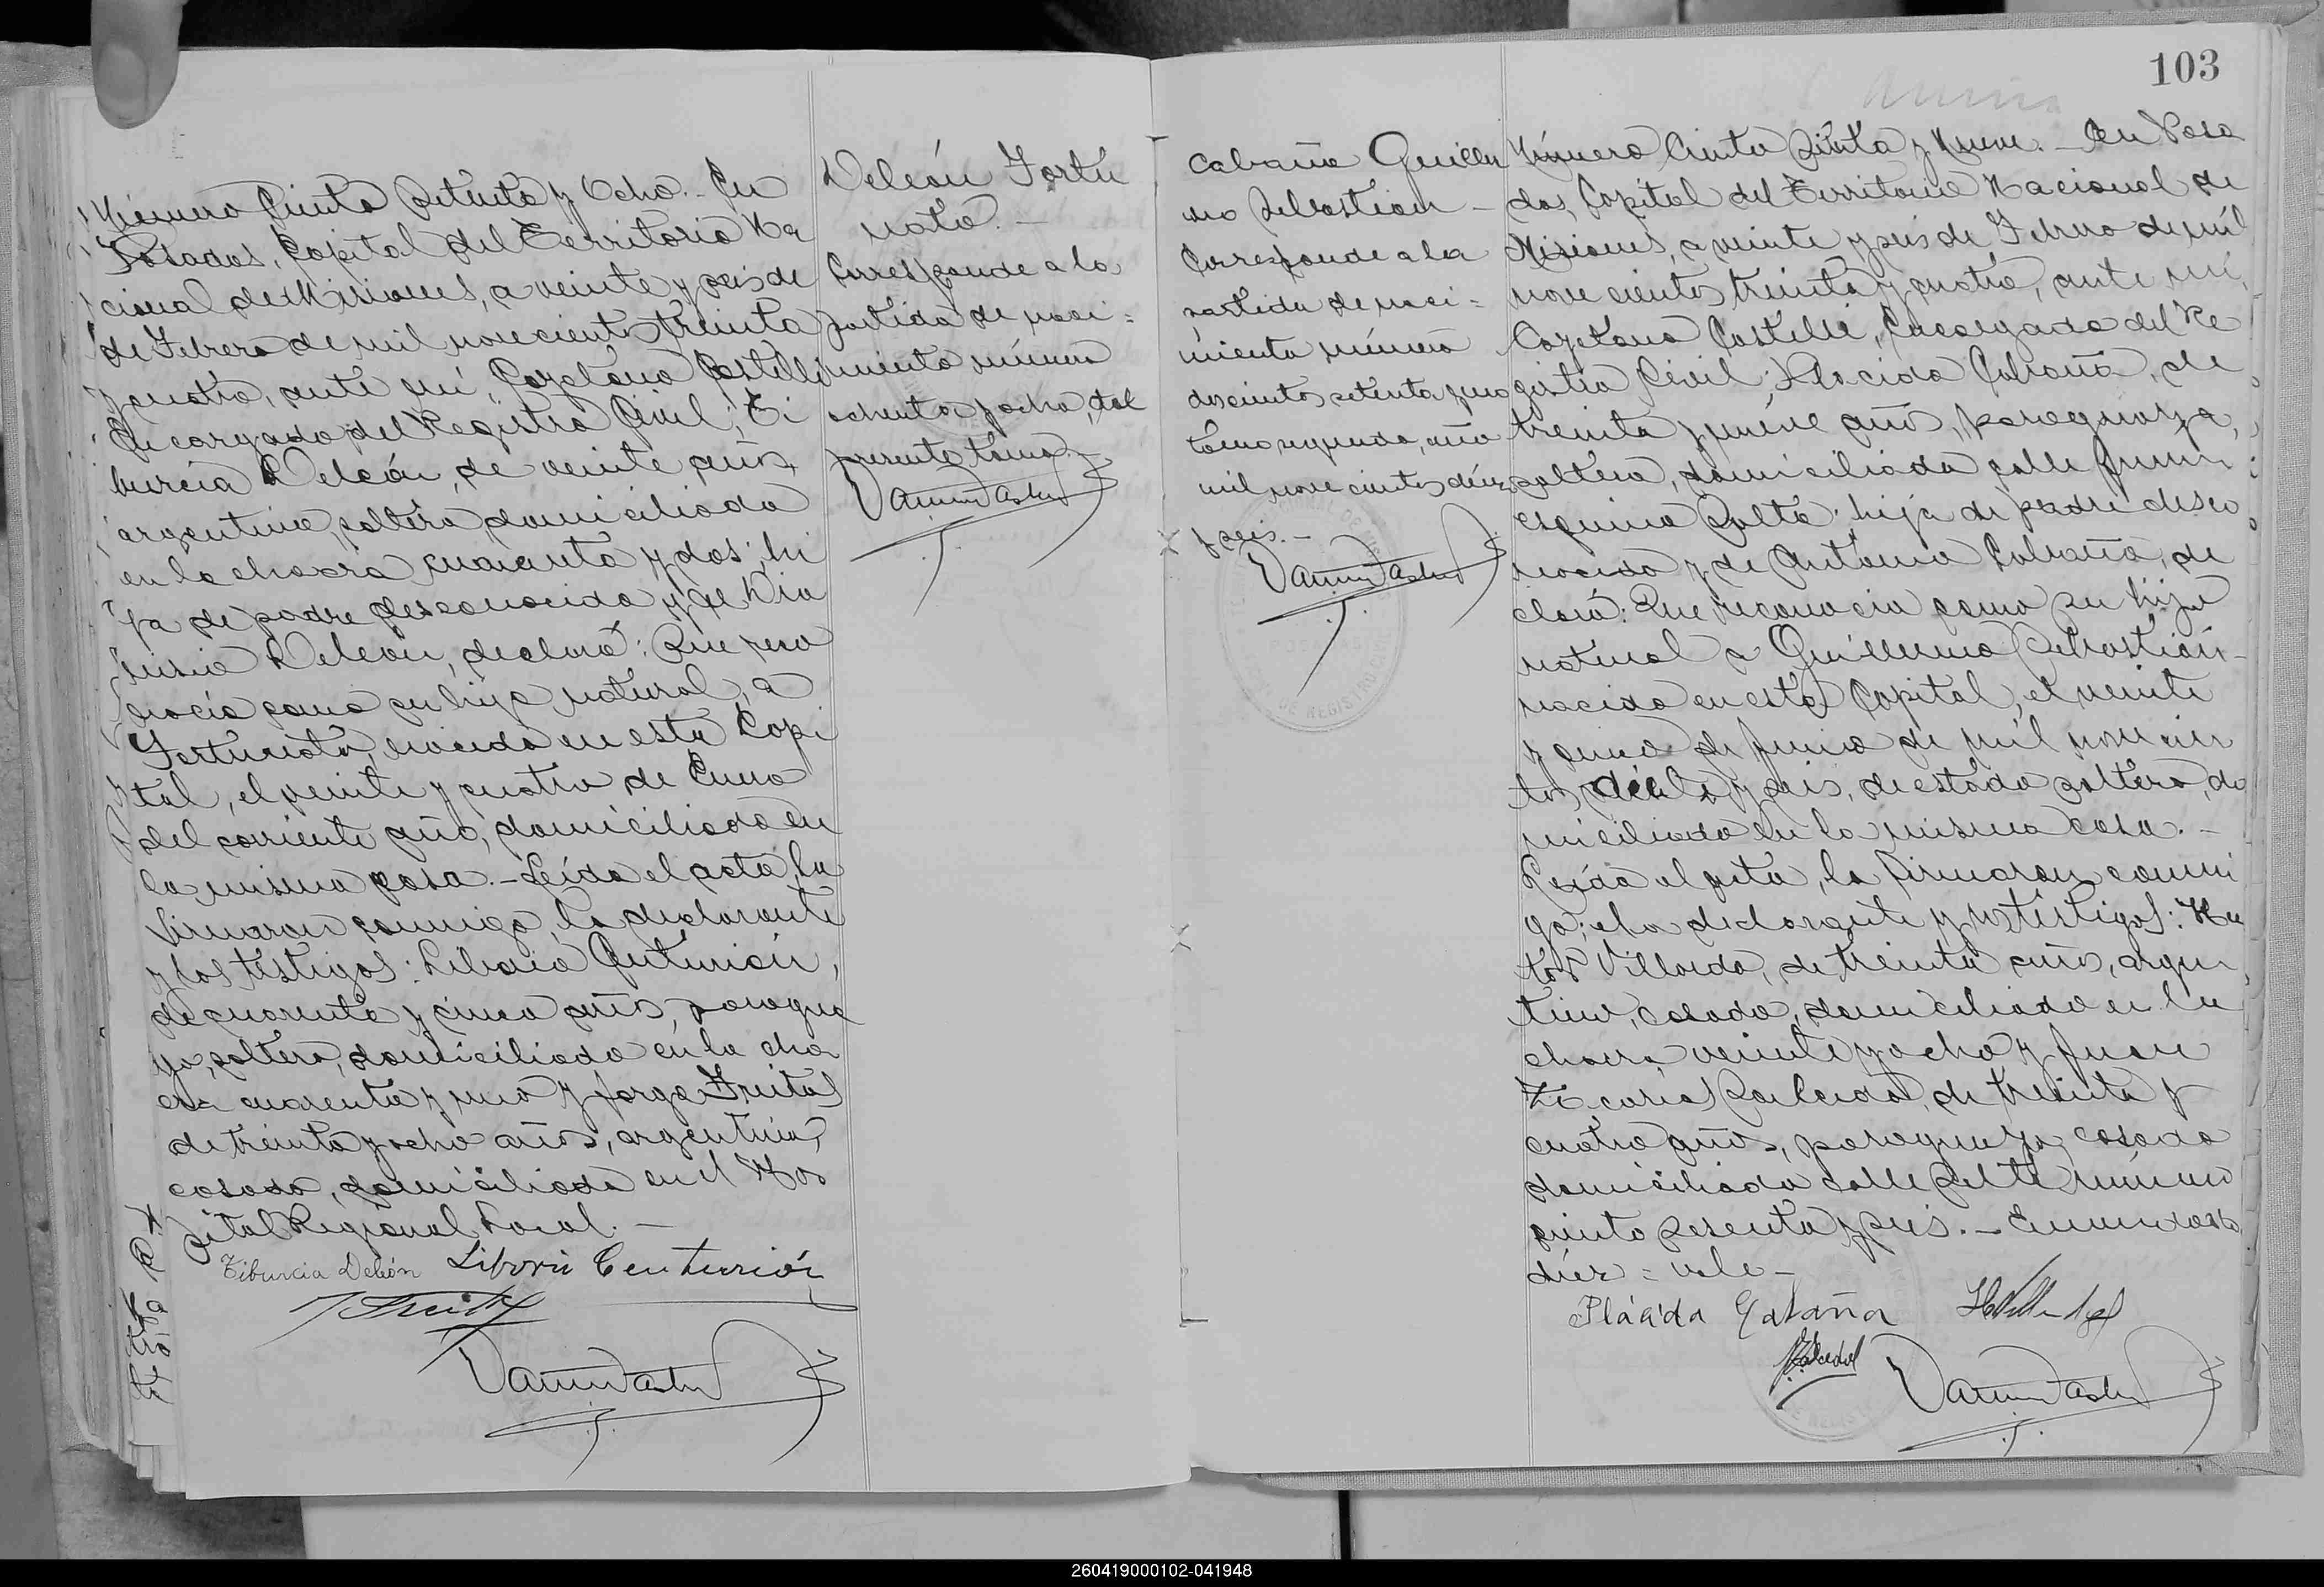 Número Ciento Setenta y Ocho.- En
Posadas, Capital del Territorio Na
cional de Misiones, a veinte y seis de
de Febrero de mil novecientos treinta
y cuatro, ante mí, Cayetano Castelli
Encargado del Registro Civil; Ti
burcia Deleón, de veinte años,
argentina, soltera, domiciliada
en la chacra cuarenta y dos; hi
ja de padre desconocido y de Dio
nisia Deleón, declaró: Que reco
nocía como su hija natural, a
Fortunata, nacida en esta Capi
tal, el veinte y cuatro de Enero
del corriente año, domiciliada en
la misma casa.- Leída el acta, la
firmaron conmigo, la declarante
y los testigos: Liborio Centurión,
de cuarenta y cinco años, paragua
yo, soltero, domiciliado en la cha
cra cuarenta y uno y Jorge Freitas
de treinta y ocho años, argentino,
casado, domiciliado en el Hos
pital Regional Local.-
Tiburcia Deleón Liborio Centurión
Deleón Fortu
nata.-
Corresponde a la
partida de naci=
miento número
ochenta y ocho, del
presente tomo.-
103
Cabaña Guiller
mo Sebastian-
Corresponde a la
partida de naci=
miento número
doscientos setenta y uno
tomo segundo, año
mil novecientos diez
y seis.-
Número Ciento Setenta y Nueve.- En Posa
das, Capital del Territorio Nacional de
Misiones, a veinte y seis de Febrero de mil
novecientos treinta y cuatro, ante mí,
Cayetano Castelli, Encargado del Re
gistro Civil; Plácida Cabaña, de
treinta y nueve años, paraguaya,
soltera, domiciliada calle Junin
esquina Salta; hija de padre desco
nocido y de Antonia Cabaña, de
claró: Que reconocia como su hijo
natural a Guillermo Sebastián-
nacido en esta Capital, el veinte
y cinco de Junio de mil novecien
tos diez y seis, de estado soltero, do
miciliado en la misma casa.-
Leída el acta, la firmaron conmi
go; la declarante y los testigos:
Villalda, de treinta años, argen
tino, casado, domiciliado en la
chacra veinte y ocho y Juan
Salcedo, de treinta y
cuatro años, paraguayo, casado
domiciliado calle Salta número
ciento sesenta y seis.- Enmendado
diez = vale-
Plácida Cabaña
260419000102-041948